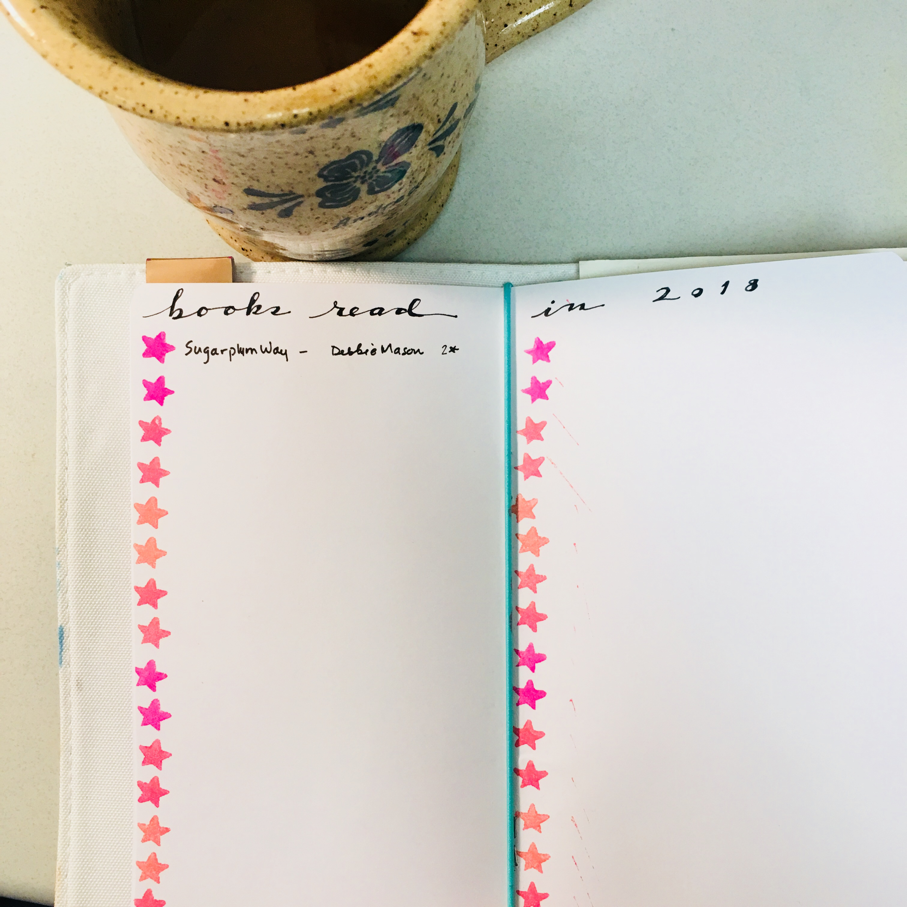 books read in 2018
Sugarplum Way - Debbie Mason 2*